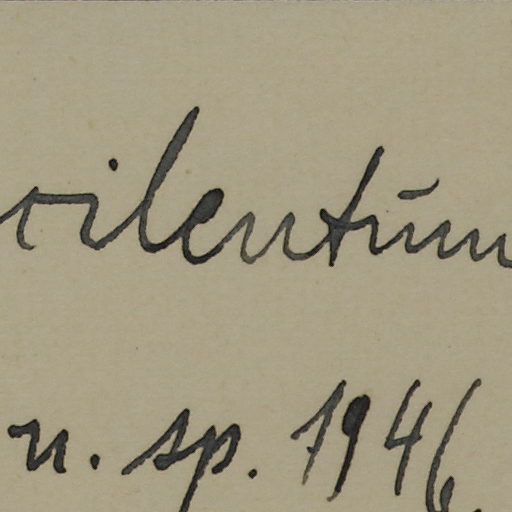 cilentum
n. sp. 1946.